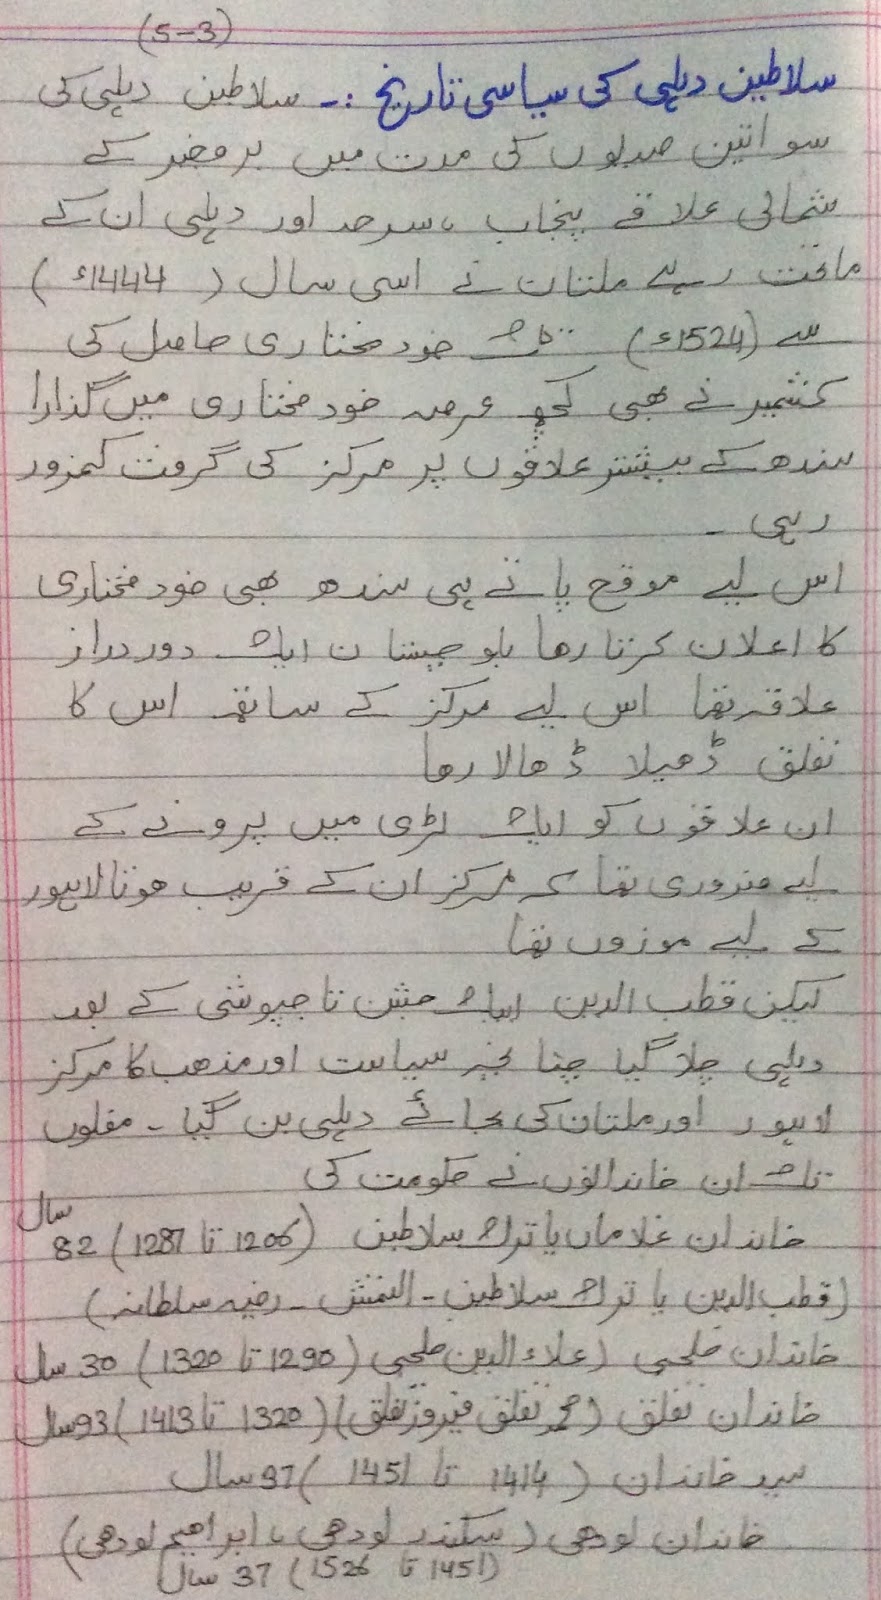 (5-3)
سلاطین دہلی کی سیاسی تاریخ :۔ سلاطین دہلی کی
سوا تین صدیوں کی مدت میں برصغیر کے
شمالی علاقے پنجاب ، سرحد اور دہلی ان کے
ماتحت رہے ملتان نے اسی سال ( 1444ء )
سے (1524ء) تک خود مختاری حاصل کی
کشمیر نے بھی کچھ عرصہ خود مختاری میں گذارا
سندھ کے بیشتر علاقوں پر مرکز کی گرفت کمزور
رہی ۔
اس لیے موقع پاتے ہی سندھ بھی خود مختاری
کا اعلان کرتا رھا بلوچستان ایک دور دراز
علاقہ تھا اس لیے مرکز کے ساتھ اس کا
تعلق ڈھیلا ڈھالا رھا
ان علاقوں کو ایک لڑی میں پرونے کے
لیے ضروری تھا کہ مرکز ان کے قریب ھوتا لاہور
کے لیے موزوں تھا
لیکن قطب الدین ایبک جشن تاجپوشی کے بعد
دہلی چلا گیا چنانچہ سیاست اور مذھب کا مرکز
لاہور اور ملتان کی بجائے دہلی بن گیا ۔ مغلوں
تک ان خاندانوں نے حکومت کی
خاندان غلاماں یا ترک سلاطین (1206 تا 1287) 82 سال
(قطب الدین یا ترک سلاطین ۔ التمش ۔ رضیہ سلطانہ)
خاندان خلجی (علاءالدین خلجی (1290 تا 1320) 30 سال
خاندان تغلق (محمد تغلق فیروز تغلق) (1320 تا 1413) 93 سال
سید خاندان ( 1414 تا 1451 ) 37 سال
خاندان لودھی ( سکندر لودھی ، ابراھیم لودھی)
(1451 تا 1526) 37 سال